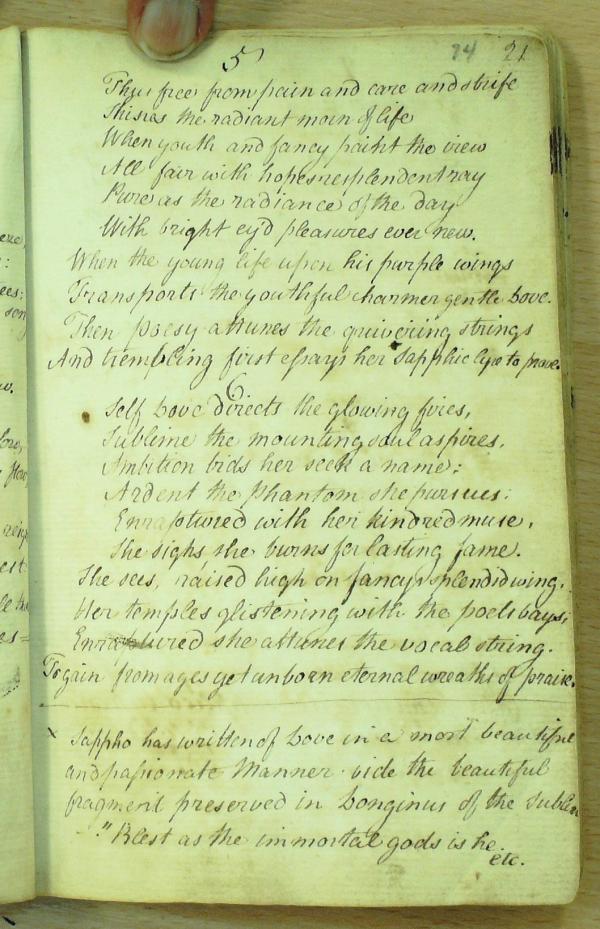 5
74 21
Thus free from pain and care and strife
This is the radiant morn of life
When youth and fancy paint the view
All fair with hopes resplendent ray
Pure as the radiance of the day
With bright ey'd pleasures ever new.
When the young life upon his purple wings
Transports the youthful charmer gentle Love.
Then poesy attunes the quivering strings
And trembling first essays her Sapphic lyre to prove.
6
Self Love directs the glowing fires,
Sublime the mounting soul aspires.
Ambition bids her seek a name;
Ardent the Phantom she pursues;
Enraptured with her kindred muse,
She sighs she burns for lasting fame.
She sees, raised high on fancys splendid wing.
Her temples glistening with the poets bays;
Enraptured she attunes the vocal string.
To gain from ages yet unborn eternal wreaths of praise.
x Sappho has written of Love in a most beautiful
and passionate Manner vide the beautiful
fragment preserved in Longinus of the Sublem
" Blest as the immortal gods is he
etc.